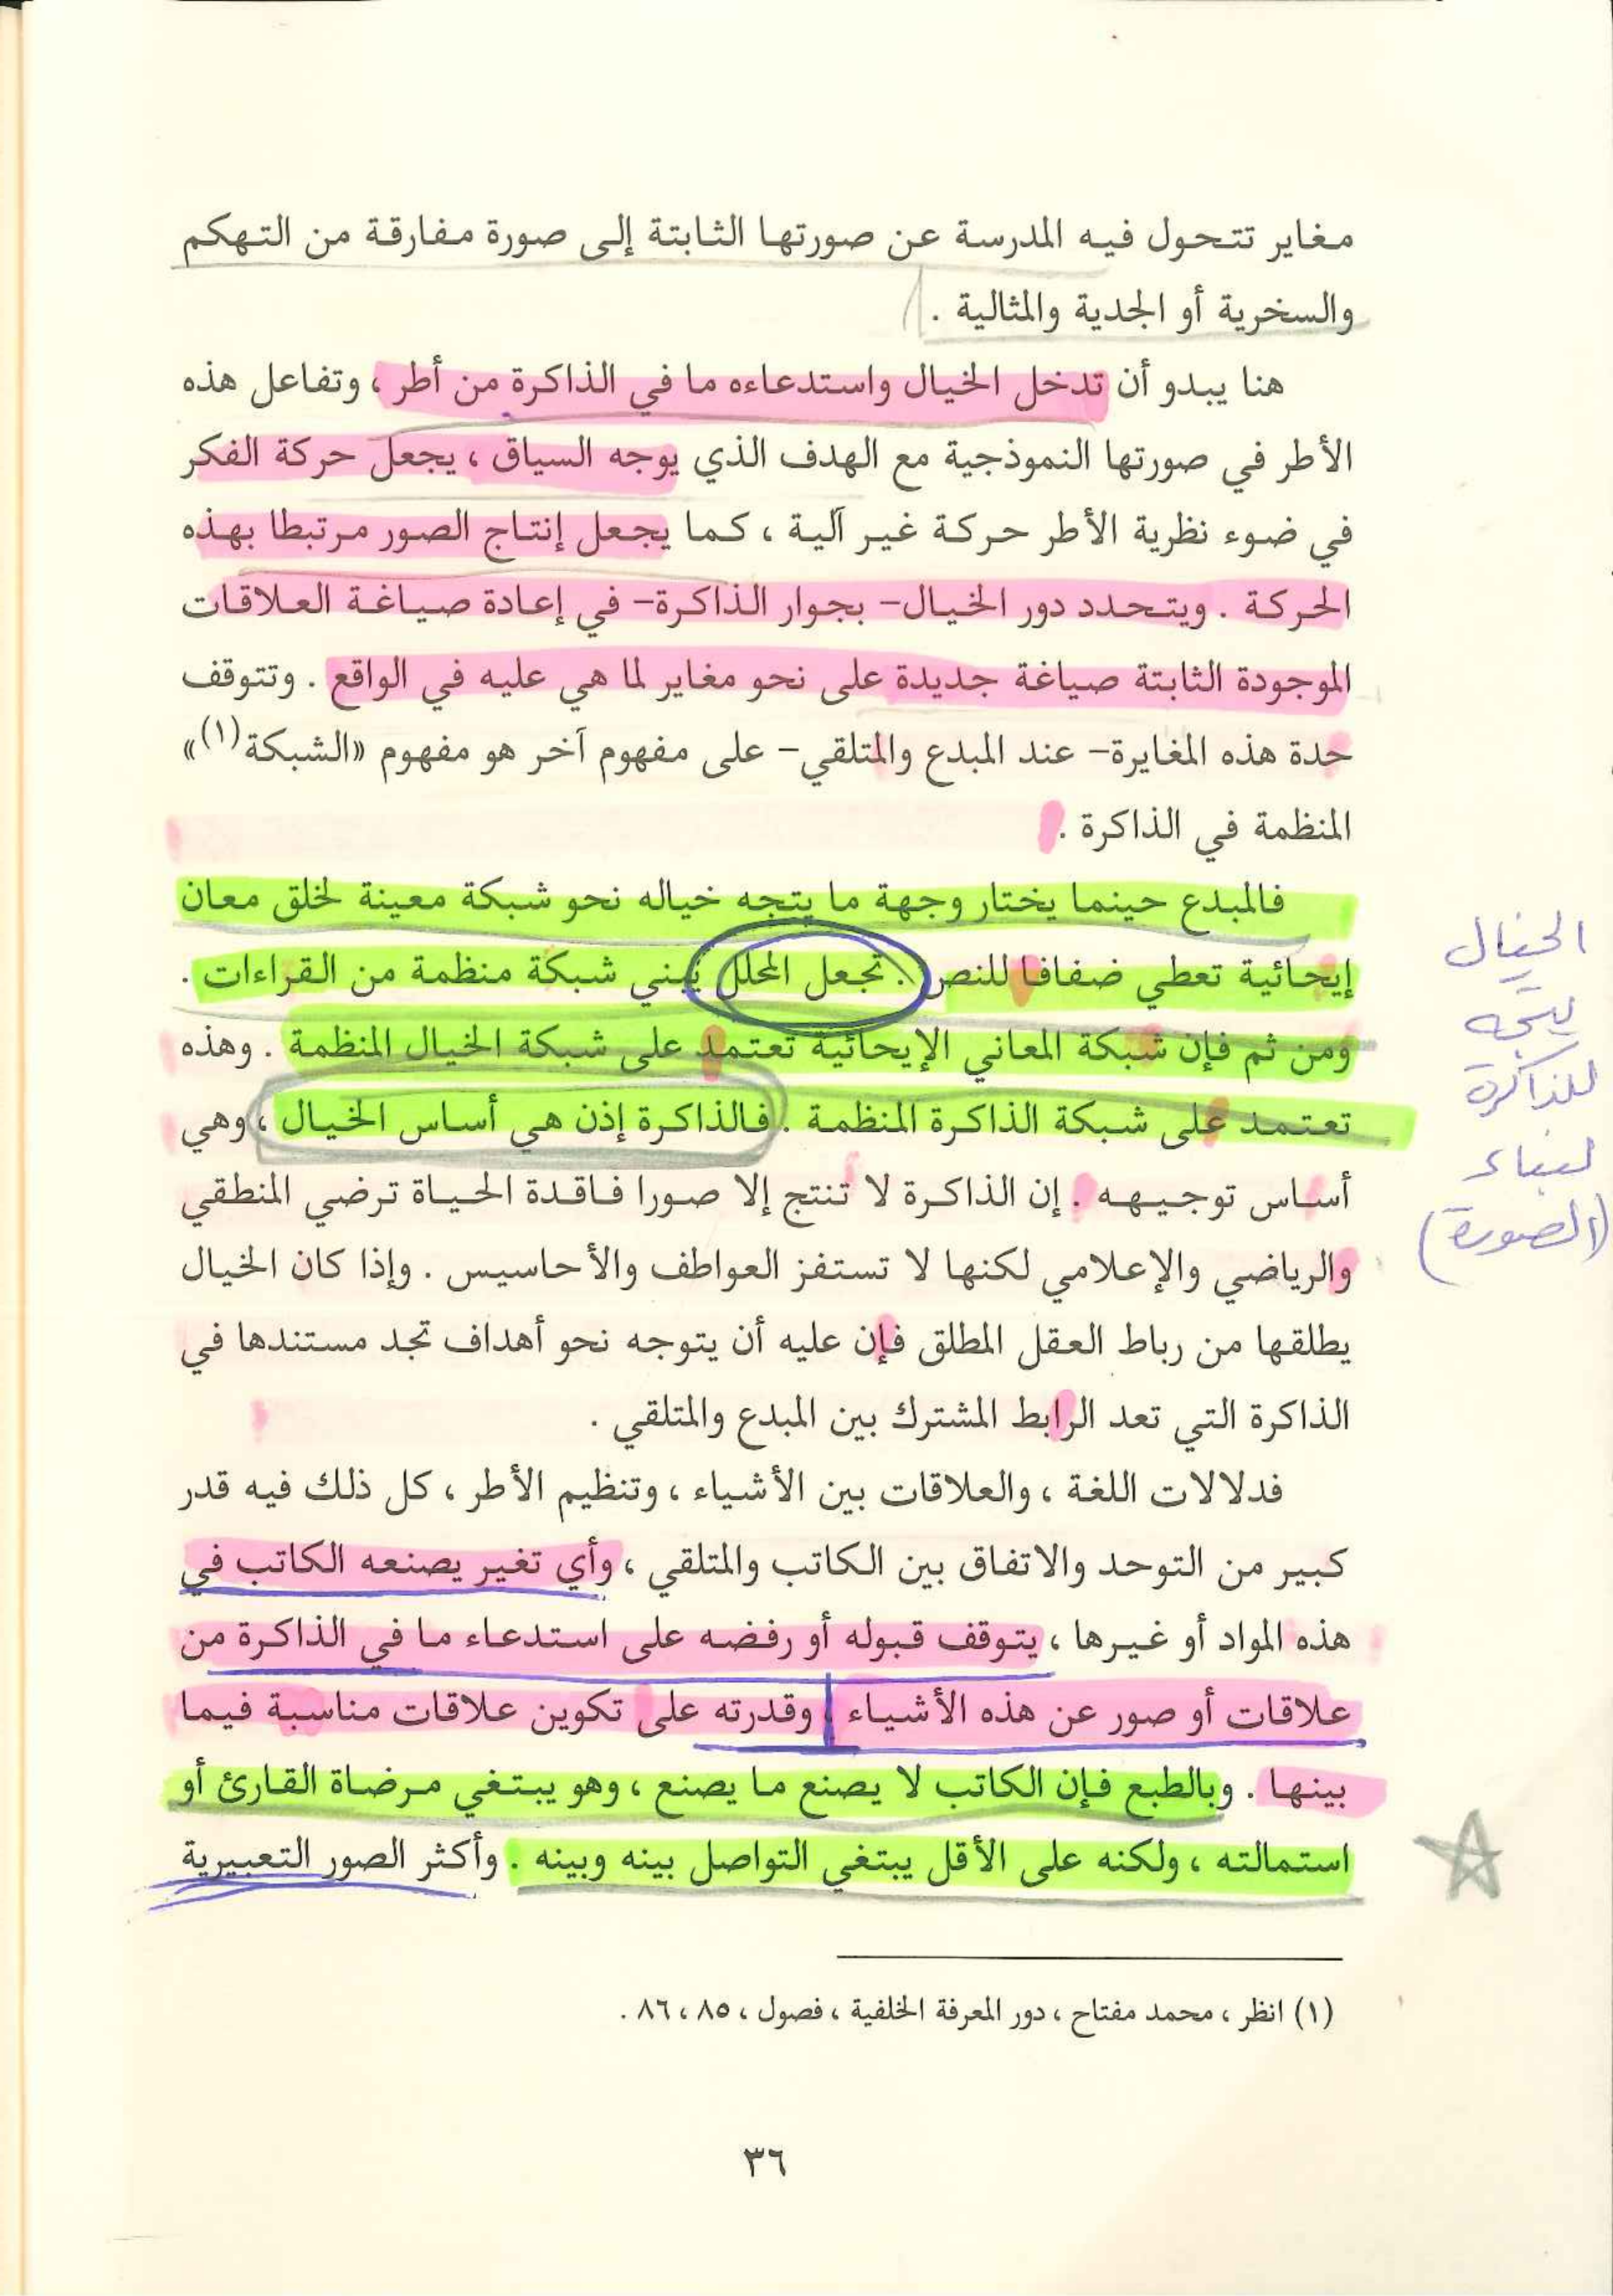 مغاير تتحول فيه المدرسة عن صورتها الثابتة إلى صورة مفارقة من التهكم
والسخرية أو الجدية والمثالية .
هنا يبدو أن تدخل الخيال واستدعاءه ما في الذاكرة من أطر ، وتفاعل هذه
الأطر في صورتها النموذجية مع الهدف الذي يوجه السياق ، يجعل حركة الفكر
في ضوء نظرية الأطر حركة غير آلية ، كما يجعل إنتاج الصور مرتبطا بهذه
الحركة . ويتحدد دور الخيال- بجوار الذاكرة- في إعادة صياغة العلاقات
الموجودة الثابتة صياغة جديدة على نحو مغاير لما هي عليه في الواقع . وتتوقف
حدة هذه المغايرة- عند المبدع والمتلقي- على مفهوم آخر هو مفهوم «الشبكة(١)»
المنظمة في الذاكرة .
فالمبدع حينما يختار وجهة ما يتجه خياله نحو شبكة معينة لخلق معان
إيحائية تعطي ضفافا للنص . تجعل المحلل يبني شبكة منظمة من القراءات .
ومن ثم فإن شبكة المعاني الإيحائية تعتمد على شبكة الخيال المنظمة . وهذه
تعتمد على شبكة الذاكرة المنظمة . فالذاكرة إذن هي أساس الخيال ، وهي
أساس توجيهه . إن الذاكرة لا تنتج إلا صورا فاقدة الحياة ترضي المنطقي
والرياضي والإعلامي لكنها لا تستفز العواطف والأحاسيس . وإذا كان الخيال
يطلقها من رباط العقل المطلق فإن عليه أن يتوجه نحو أهداف تجد مستندها في
الذاكرة التي تعد الرابط المشترك بين المبدع والمتلقي .
فدلالات اللغة ، والعلاقات بين الأشياء ، وتنظيم الأطر ، كل ذلك فيه قدر
كبير من التوحد والاتفاق بين الكاتب والمتلقي ، وأي تغير يصنعه الكاتب في
هذه المواد أو غيرها ، يتوقف قبوله أو رفضه على استدعاء ما في الذاكرة من
علاقات أو صور عن هذه الأشياء ، وقدرته على تكوين علاقات مناسبة فيما
بينها . وبالطبع فإن الكاتب لا يصنع ما يصنع ، وهو يبتغي مرضاة القارئ أو
استمالته ، ولكنه على الأقل يبتغي التواصل بينه وبينه . وأكثر الصور التعبيرية
(١) انظر ، محمد مفتاح ، دور المعرفة الخلفية ، فصول ، ٨٥ ، ٨٦ .
٣٦
الخيال
يتجه
للذاكرة
لبناء
(الصورة)